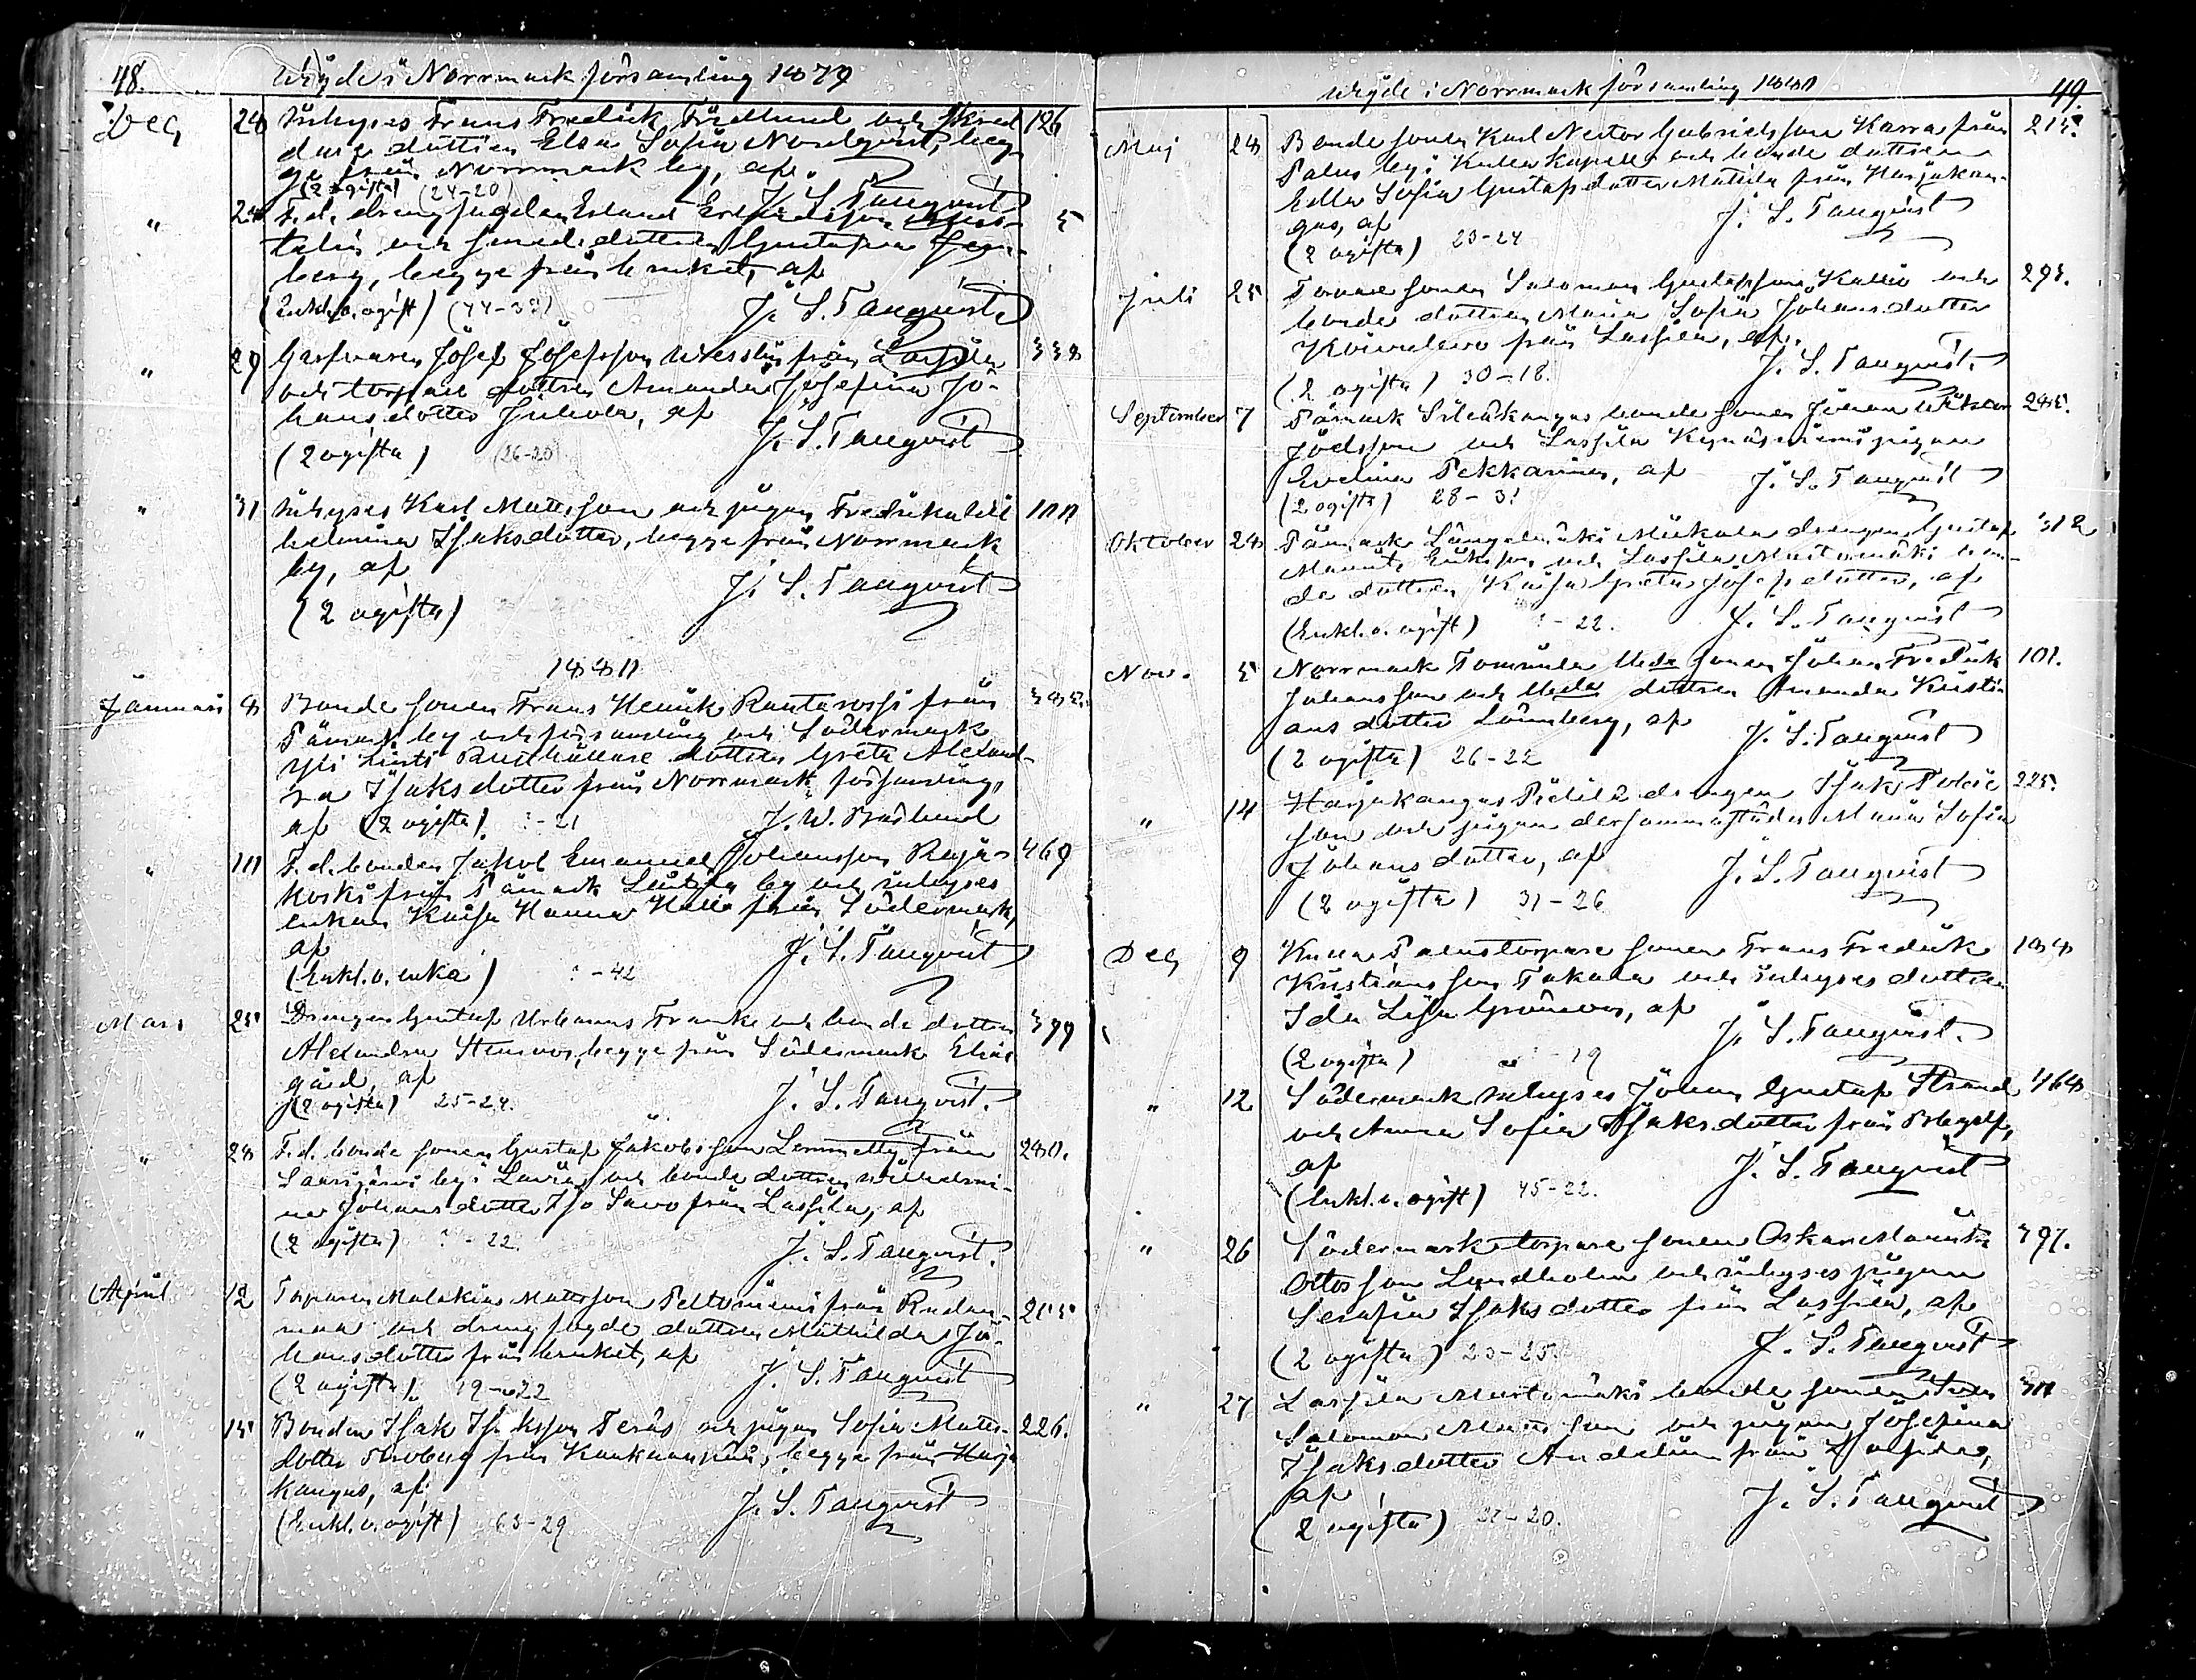 48. Wigde i Norrmark församling 1879
Dec 28 Inhyses Frans Fredrik Fredlund och Skred- 126
dare dottren Elsa Sofia Nordqvist, beg-
ge från Norrmark by, af
(2 ogifta) (24-20) J. S. Tanqvist
" 28 F. d. dreng Erland 5
och smed dottren Gustafva
berg, begge från bruket, af
(Enkl. o. ogift) (44-3?) J. S. Tanqvist
" 29 Josef Josefsson från Lassila 338
och torpare dottren Amanda Josefina Jo-
hans dotter Juhola, af
(2 ogifta) (26-20) J. S. Tanqvist
" 31 Inhyses Karl Mattsson och pigan Fredrika Wil 100
helmina Isaksdotter, begge från Norrmark
by, af
(2 ogifta) J. S. Tanqvist
1880
Januari 8 Bonde sonen Frans Henrik Rantarossi från 382.
Påmark by och församling och Södermark
Yli Rusthållare dottren Greta Alexand-
ra Isaksdotter från Norrmark församling,
af (2 ogifta) ?-21 J. W. Brådlund
" 10 F. d. bonden Jakob Emanuel Johansson Raja- 469
koski från Påmark by och inhyses
enkan Kaisa Hanna från Södermark,
af
(Enkl. o. enka) ?-42 J. S. Tanqvist
Mars 25 Drengen Gustaf Urbanus Franke och bonde dottren 399
Alexandra Stenroos, begge från Södermark
gård, af
(2 ogifta) 25-24. J. S. Tanqvist.
" 28 F. d. bonde sonen Gustaf Jakobsson Lemmetty från 280.
Saarijärvi by i Lavia och bonde dottren Wilhelmi-
na Johans dotter Iso Savo från Lassila, af
(2 ogifta) ?-22. J. S. Tanqvist.
April 12 Torparen Malakias Mattsson Peltoniemi från Rudan- 255
maa och dreng fogde dottren Mathilda Jo-
hans dotter från bruket, af
(2 ogifta). 19-22 J. S. Tanqvist
" 15 Bonden Isak Isaksson Terås och pigan Sofia Matts- 226.
dotter Stroberg från Kankaanpää, begge från Harja
kangas, af
(Enkl. o. ogift) 63-29 J. S. Tanqvist
Wigde i Norrmark församling 1880 49.
Maj 28 Bonde sonen Karl Nestor Gabrielsson Karra från 215.
Palus by i Kulla kapell och bonde dottren
Hedda Sofia Gustafs dotter Mattila från Harjakan-
gas, af
(2 ogifta) 23-24 J. S. Tanqvist
Juli 25 Torpare sonen Salomon Gustafsson Kallio och 295.
bonde dottren Maria Sofia Johansdotter
Koivulero från Lassila, af
(2 ogifta) 30-18. J. S. Tanqvist.
September 7 Påmark bonde sonen Johan Wiktor 285.
och Lassila Kynäsniemi pigan
Evelina Pekkarinen, af
(2 ogifta) 28-3? J. S. Tanqvist
Oktober 28 Påmark Längelmäki Mickala drengen Gustaf 312
Mauritz Eriksson och Lassila Mustamäki bon-
de dottren Kaisa Greta Josefsdotter, af
(Enkl. o. ogift) ?-22. J. S. Tanqvist
Nov. 5 Norrmark Tommila sonen Johan Fredrik 101.
Johansson och dottren Amanda Kristi
ans dotter Lönnberg, af
(2 ogifta) 26-22 J. S. Tanqvist
" 14 Harjakangas drengen Isak 225.
son och pigan dersammastädes Maria Sofia
Johans dotter, af
(2 ogifta) 31-26 J. S. Tanqvist
Dec 9 Kulla Palus torpare sonen Frans Fredrik 188
Kristiansson Takala och inhyses dottren
Ida Lisa Grönroos, af
(2 ogifta) -19 J. S. Tanqvist.
" 12 Södermark inhyses Johan Gustaf Strand 468
och Anna Sofia Isaksdotter från
af
(Enkl. o. ogift) 45-22. J. S. Tanqvist
" 26 Södermark torpare sonen Oskar Mauritz 397.
Ottosson Lindholm och inhyses pigan
Serafia Isaksdotter från Lassila, af
(2 ogifta) 23-25 J. S. Tanqvist
" 27 Lassila Mustamäki bonde sonen 30
Salomon Matts son och pigan Josefina
Isaksdotter Andelin från Lassila,
af
(2 ogifta) 21-20. J. S. Tanqvist